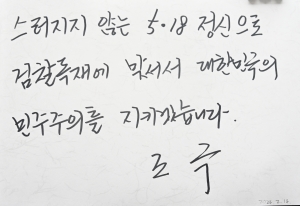 스러지지 않는 5·18 정신으로
검찰독재에 맞서서 대한민국의
민주주의를 지키겠습니다.
조국